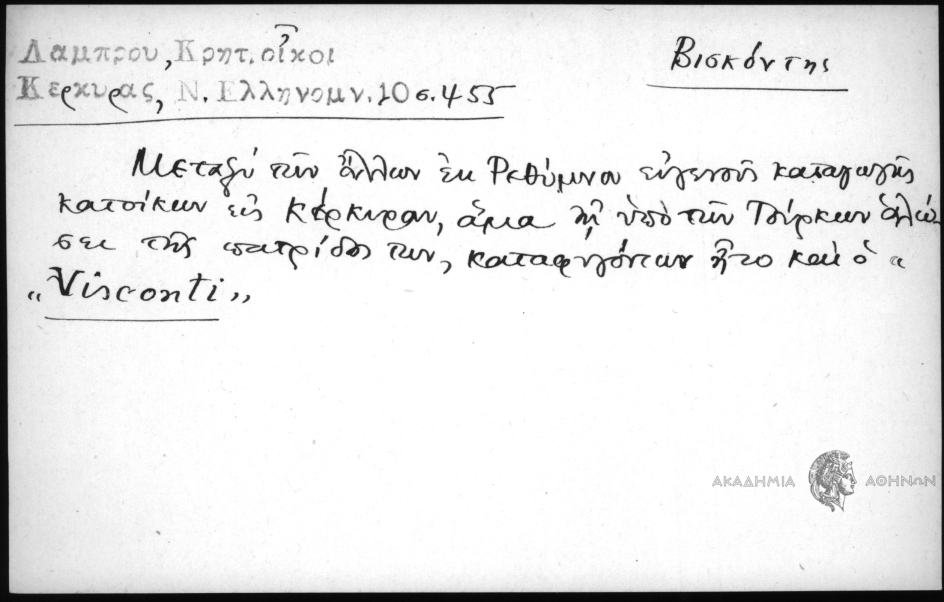 Λαμπρου, Κρητ. οἶκοι
Κερκυρας, Ν. Ελληνομν. 10 σ. 455
Βισκόντης
Μεταξύ τῶν ἄλλων ἐκ Ρεθύμνου εὐγενοῦς καταγωγῆς
κατοίκων εἰς Κέρκυραν, ἅμα τῇ ὑπό τῶν Τούρκων ἁλώ
σει τῆς πατρίδος των, καταφυγόντων ἦτο καί ὁ "
„Visconti„
ΑΚΑΔΗΜΙΑ ΑΘΗΝΩΝ